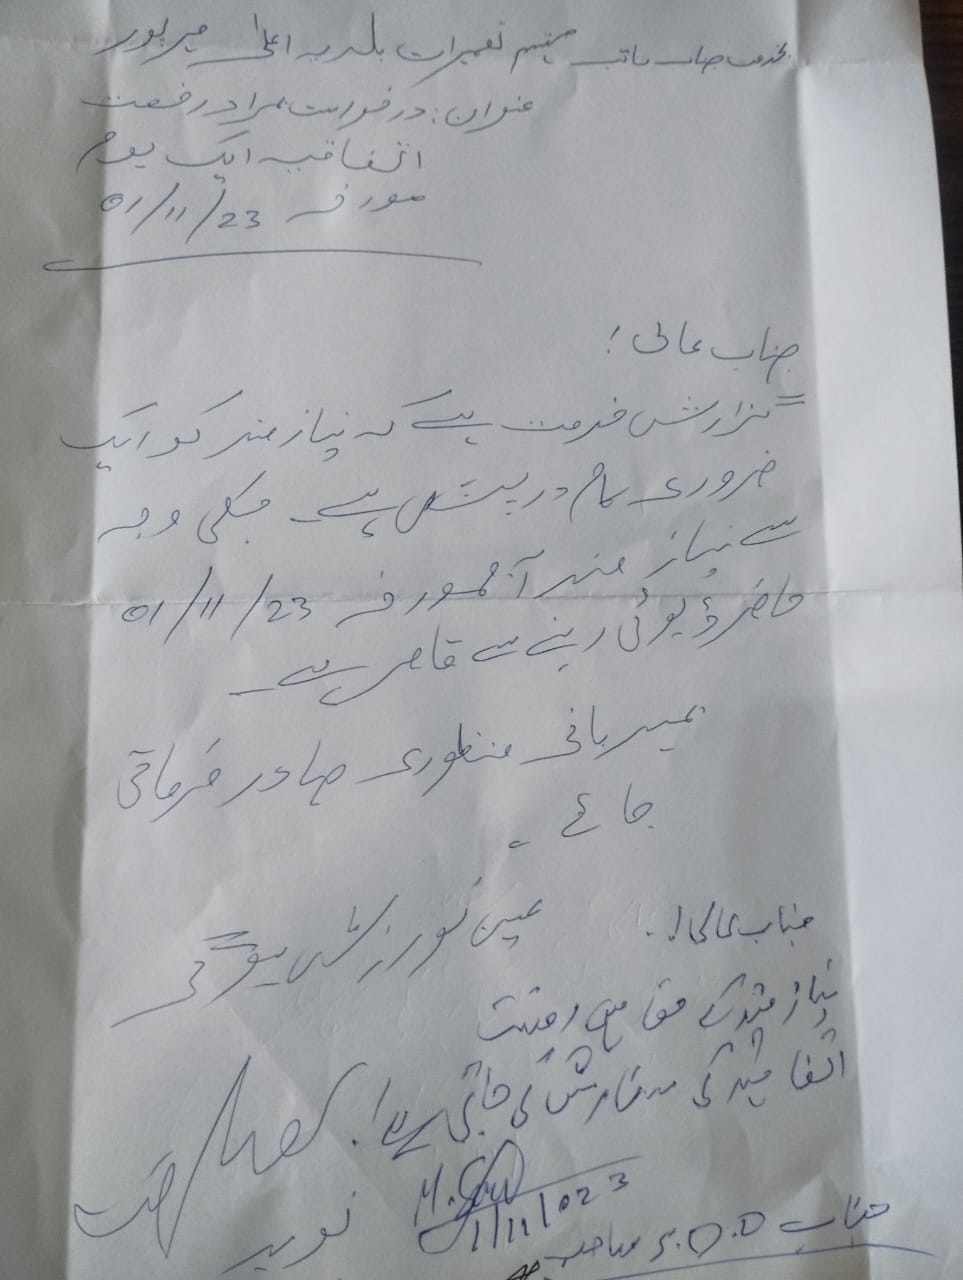 بخدمت جناب نائب مہتمم تعمیرات بلدیہ اعلیٰ میرپور
عنوان: درخواست بمراد رخصت
اتفاقیہ ایک یوم
مورخہ 01/11/23
جناب عالی!
گزارش خدمت ہے کہ نیاز مند کو ایک
ضروری کام درپیش ہے۔ جسکی وجہ
سے نیاز مند آج مورخہ 01/11/23
حاضر ڈیوٹی رہنے سے قاصر ہے۔
بمہربانی منظوری صادر فرمائی
جائے۔
عین نوازش ہوگی
جناب عالی!
نیاز مند کے حق میں رخصت
اتفاقیہ کی سفارش کی جاتی ہے!
1/11/023
نوید
جناب S.D.O صاحب